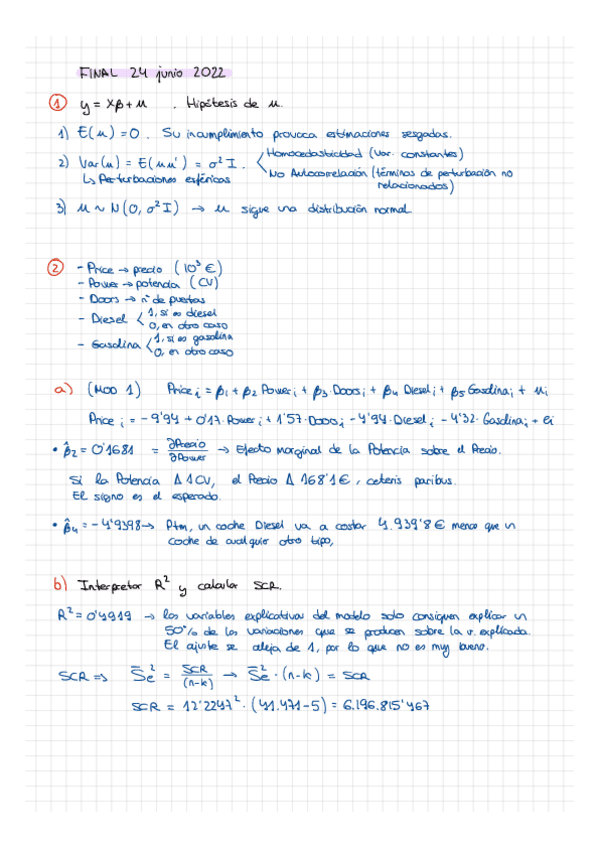 FINAL 24 junio 2022
① y = Xβ + u . Hipótesis de u.
1) E(u) = 0 . Su incumplimiento provoca estimaciones sesgadas.
2) Var(u) = E(uu') = σ² I . Homocedasticidad (Var. constantes)
↳ Perturbaciones esféricas No Autocorrelación (términos de perturbación no relacionados)
3) u ~ N(0, σ² I) → u sigue una distribución normal
② - Price → precio (10³ €)
- Power → potencia (CV)
- Doors → nº de puertas
- Diesel < 1, si es diesel
0, en otro caso
- Gasolina < 1, si es gasolina
0, en otro caso
a) (MOD 1) Price i = β1 + β2 Power i + β3 Doors i + β4 Diesel i + β5 Gasolina i + ui
Price i = -9'94 + 0'17· Power i + 1'57· Doors i - 4'94· Diesel i - 4'32· Gasolina i + ei
• β̂2 = 0'1681 = ∂Precio / ∂Power → Efecto marginal de la Potencia sobre el Precio.
Si la Potencia Δ 1CV, el Precio Δ 168'1 €, ceteris paribus.
El signo es el esperado.
• β̂4 = -4'9398 → Ptm, un coche Diesel va a costar 4.939'8 € menos que un
coche de cualquier otro tipo,
b) Interpretar R² y calcular SCR.
R² = 0'4919 → las variables explicativas del modelo solo consiguen explicar un
50% de las variaciones que se producen sobre la v. explicada.
El ajuste se aleja de 1, por lo que no es muy bueno.
SCR ⇒ S̄e² = SCR / (n-k) → S̄e² · (n-k) = SCR
SCR = 12'2247² · (41.471-5) = 6.196.815'467